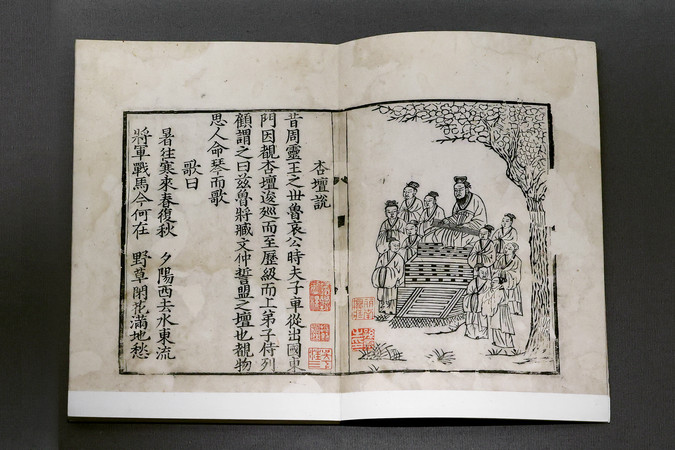 杏壇說
昔周靈王之世魯哀公時夫子車從出國東
門因覩杏壇逡廵而至歷級而上弟子侍列
顧謂之曰兹魯將臧文仲誓盟之壇也覩物
思人命琴而歌
歌曰
暑往寒來春復秋 夕陽西去水東流
將軍戰馬今何在 野草閑花滿地愁